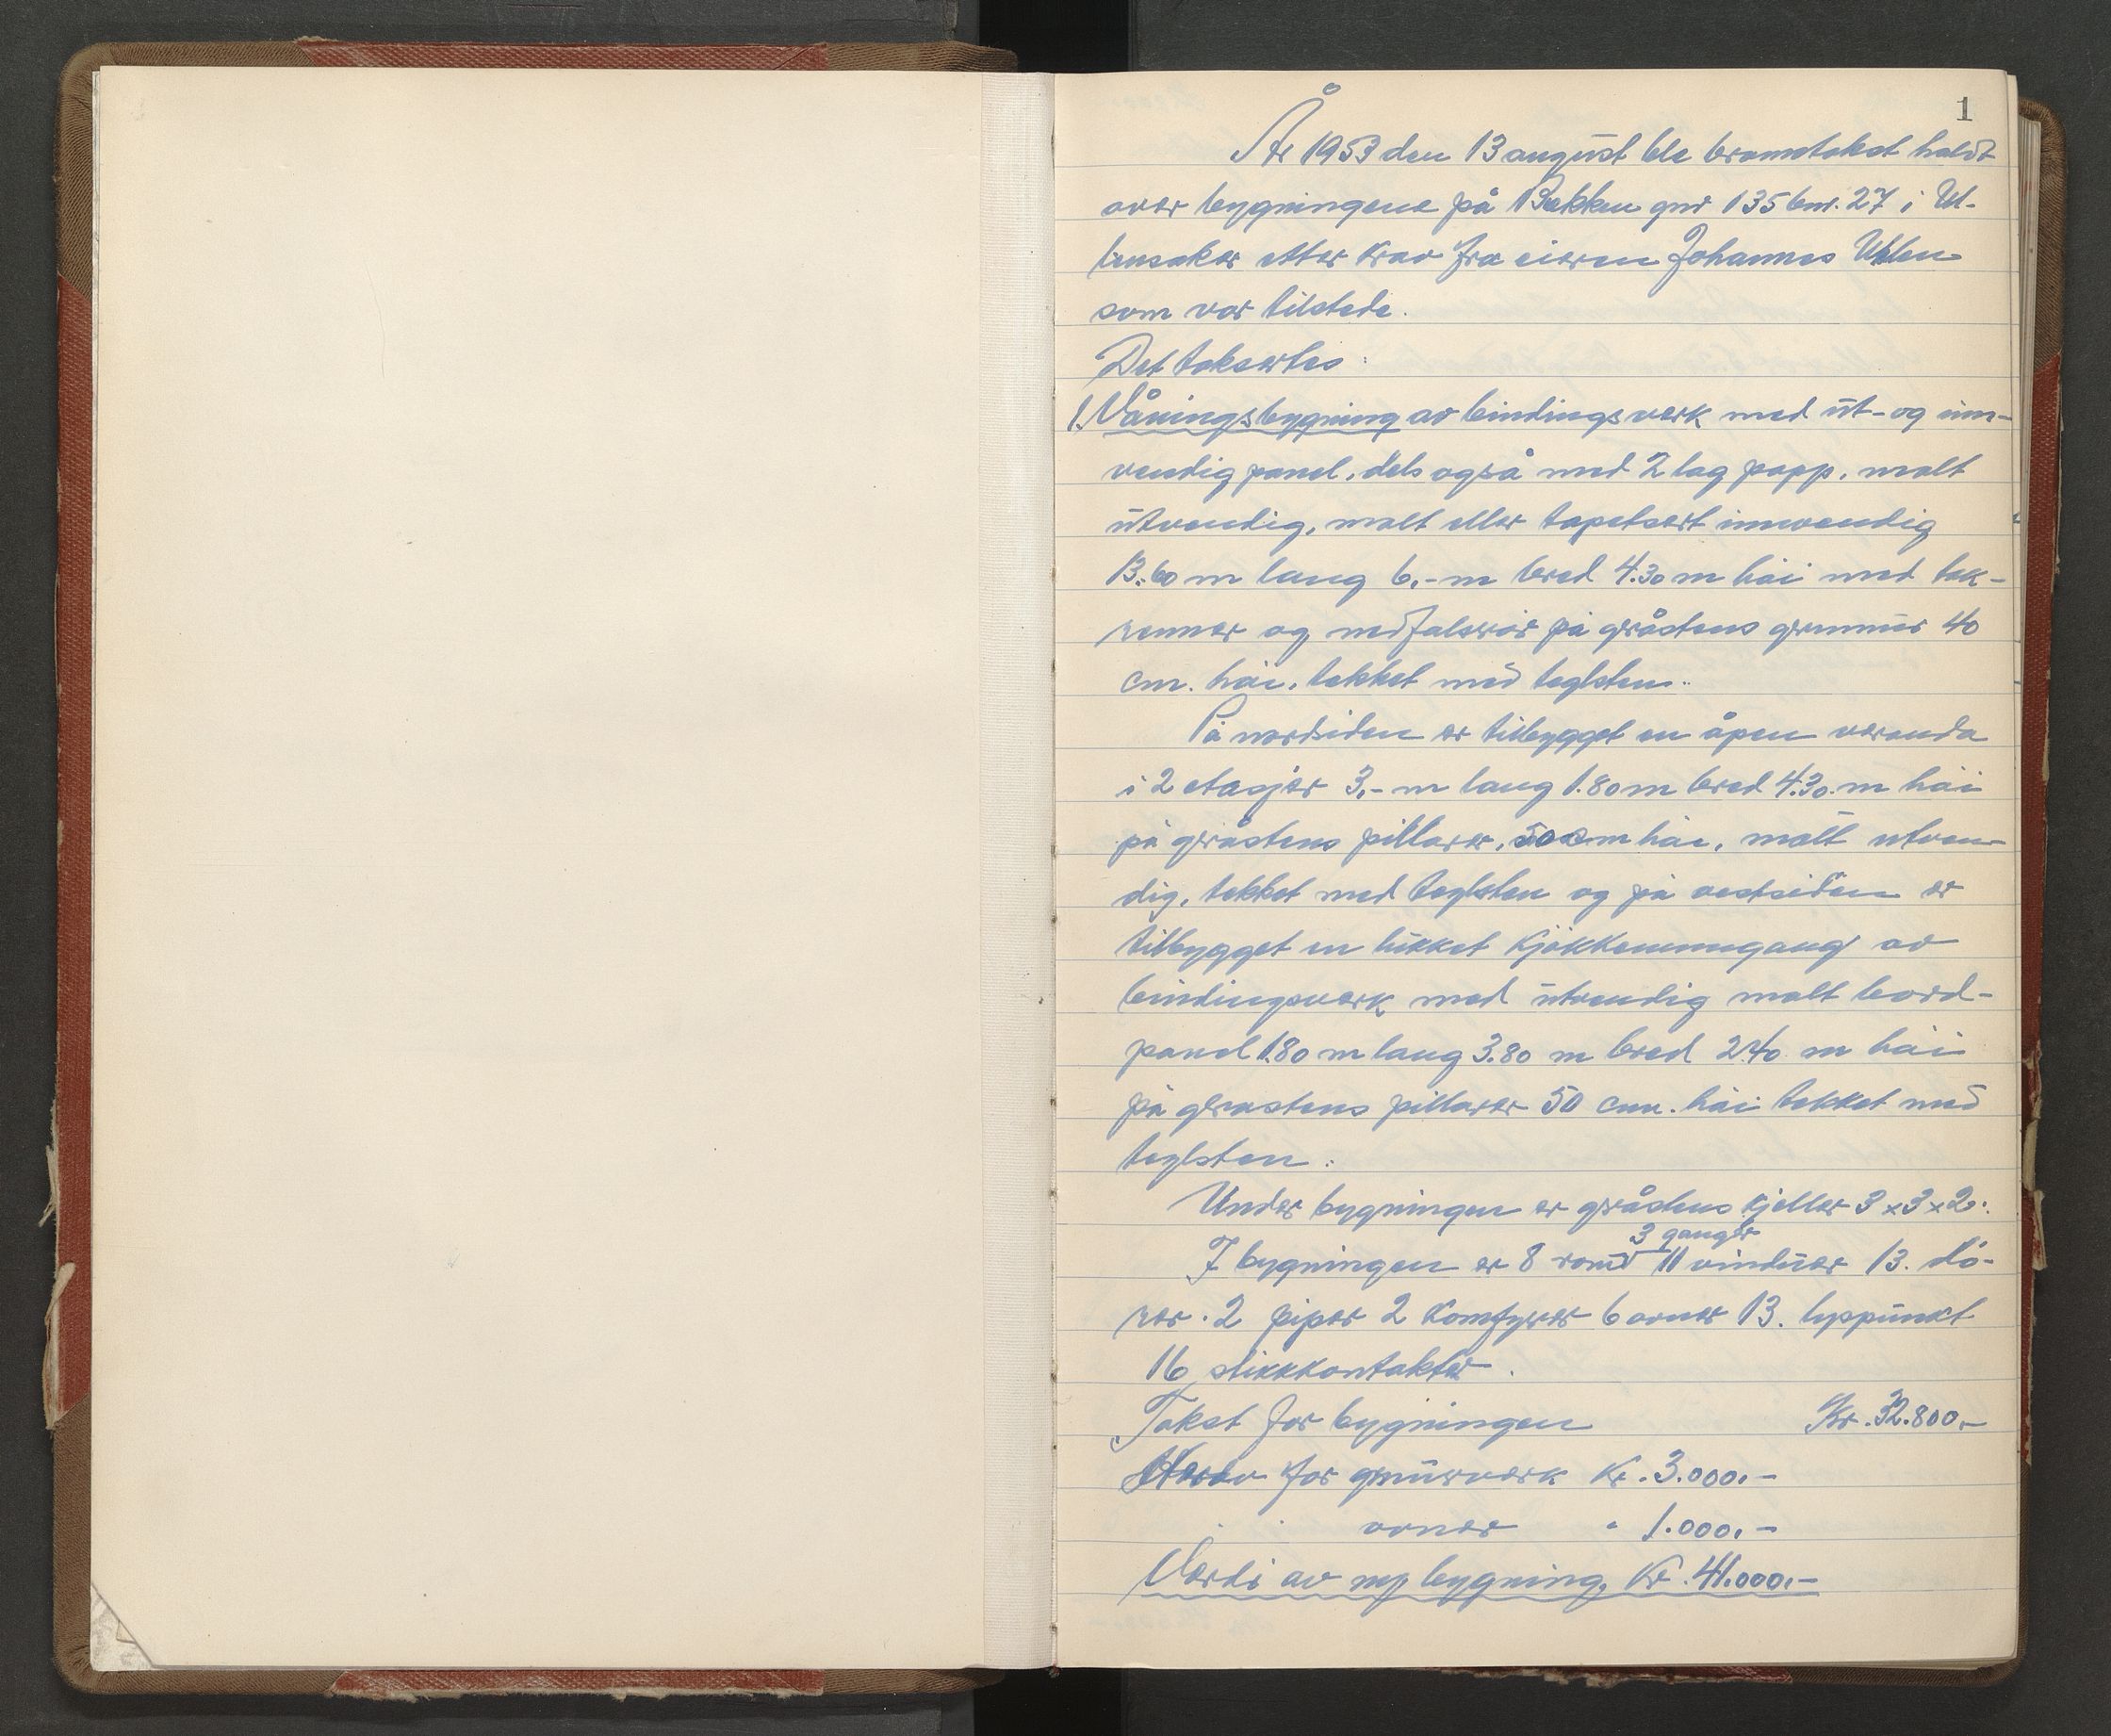 1
År 1953 den 13 august ble branntakst holdt
over bygningene på Bakken gnr 135 bnr. 27 i Ul-
lensaker etter krav fra eieren Johannes Uhlen
som var tilstede.
Det taksertes:
1. Våningsbygning av bindingsverk med ut- og inn-
vendig panel, dels også med 2 lag papp, malt
utvendig, malt eller tapetsert innvendig
13.60 m lang 6,- m bred 4.30 m høi med tak-
renner og nedfalsrør på gråstens grmmur 40
cm. høi, tekket med teglsten.
På nordsiden er tilbygget en åpen veranda
i 2 etasjer 3,- m lang 1.80 m bred 4.30 m høi
på gråstens pillarer, 50 cm høi, malt utven-
dig, tekket med teglsten og på vestsiden er
tilbygget en lukket kjøkkeninngang av
bindingsverk med utvendig malt bord-
panel 1.80 m lang 3.80 m bred 2.40 m høi
på gråstens pillarer 50 cm. høi tekket med
teglsten.
Under bygningen er gråstens kjeller 3 x 3 x 2.
3 ganger
I bygningen er 8 rom 11 vinduer 13. dø-
rer. 2 piper 2 komfyrer 6 ovner 13. lyspunkt
16 stikkkontakter.
Takst for bygningen Kr. 32.800,-
Herav for grmurverk Kr. 3.000,-
" " ovner " 1.000,-
Verdi av ny bygning, Kr. 41.000,-